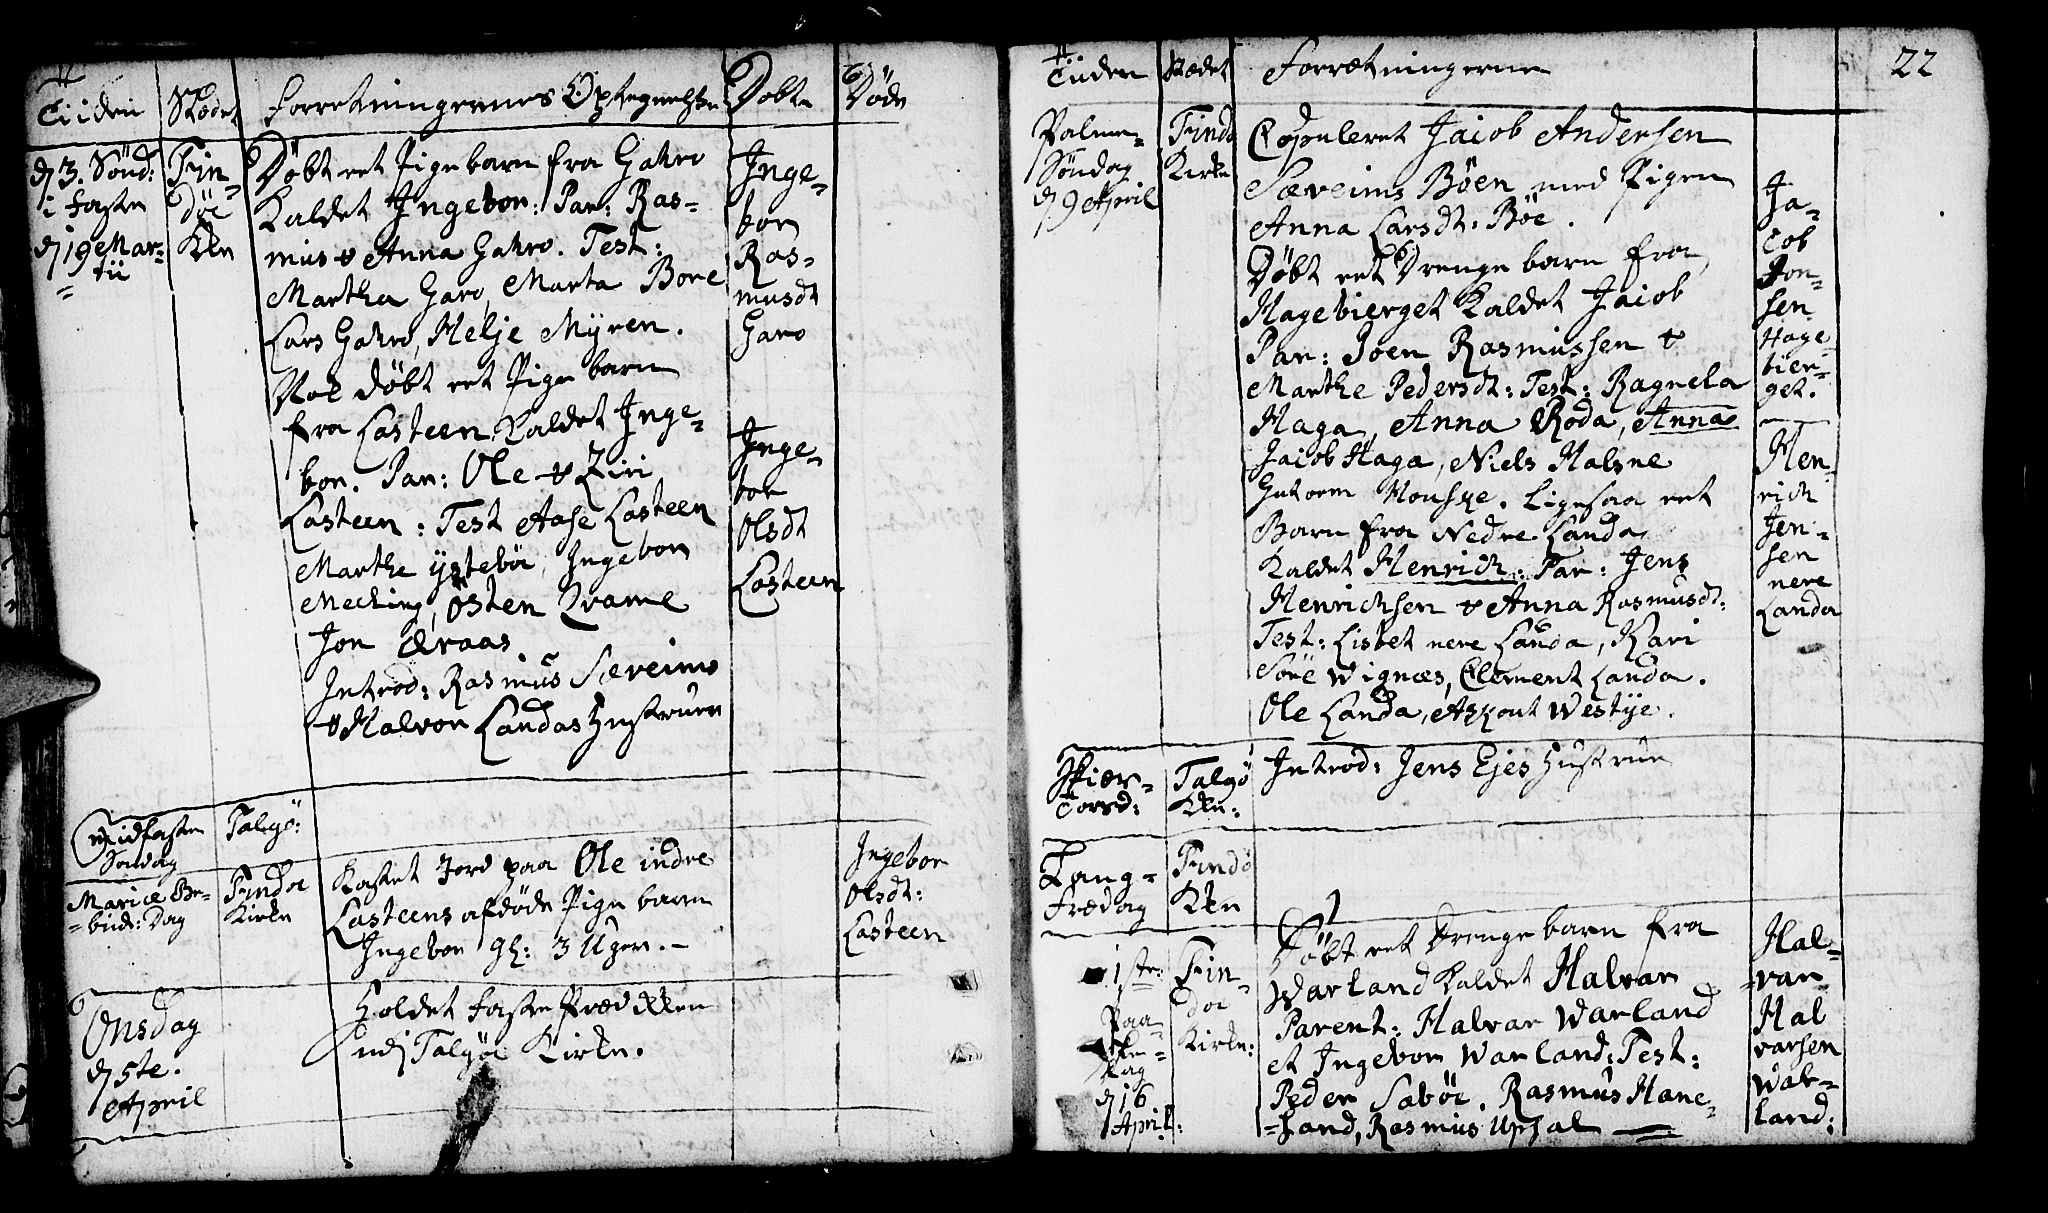 Tiiden Stædet Forretningernes Optegnelse Døbte Døde
d 3. Sönd:
i faste
d 19 Mar-
tii
Fin-
döe
Kken
Døbt eet Pigebarn fra Gahro
kaldet Ingebor: Par: Ras-
mus & Anna Gahro. Test:
Martha Garo, Marta Bore
Lars Gahro, Helje Mÿren.
Noe døbt eet Pige barn
fra Lasteen kaldet Inge-
bor. Par: Ole & Ziri
Lasteen: Test Aase Lasteen
Marthe ÿsteböe, Ingebor
Mecking, Östen Qvame
Jon Aaraas.
Introd: Rasmus Sereims
& Halvor Landas Hustruer
Inge-
bor
Ras-
musdt
Garo
Inge-
bor
Olsdt
Lasteen
Midfaste
Søndag
Talgö:
Mariæ Be-
bud: Dag
Findöe
Kirke
Kastet Jord paa Ole indre
Lasteens afdøde Pige barn
Ingebor gl: 3 Uger.-
Ingebor
Olsdt:
Lasteen
Onsdag
d 5te.
April
Holdet faste Prædikken
udj Talgöe Kirke.
Tiiden Stædet Forretningerne 22
Palme-
Søndag
d 9 April
Findö
Kirke
Copuleret Jacob Andersen
Særeims Böen med Pigen
Anna Larsdt: Böe.
Døbt eet Drenge barn fra
Hagebierget kaldet Jacob
Par: Joen Rasmussen &
Marthe Pedersdt: Test: Ragnela
Haga, Anna Roda, Anna
Jacob Haga, Niels Halsne
Gutorm Housge. Ligesaa eet
Barn fra Nedre Landa
kaldet Henrich: Par: Jens
Henrichsen & Anna Rasmusdt:
Test: Lisbet nere Landa, Kari
Söre Wignæs, Clement Landa.
Ole Landa, Westÿe.
Ja-
cob
Jon-
sen
Hage-
bier-
get.
Hen-
rich
Jen-
sen
nere
Landa
Skier-
Torsd:
Talgö
Kken:
Introd: Jens Ejes Hustrue
Lang-
fredag
Findö
Kken
1ste:
Paa-
ske-
dag
d 16
April:
Fin-
döe
Kirke:
Døbt eet Drenge barn fra
Warland kaldet Halvar
Parent: Halvar Warland
et Ingebor Warland: Test:
Peder Saböe, Rasmus Hane-
sand, Rasmus Upsal
Hal-
var
Hal
varsen
War-
land: